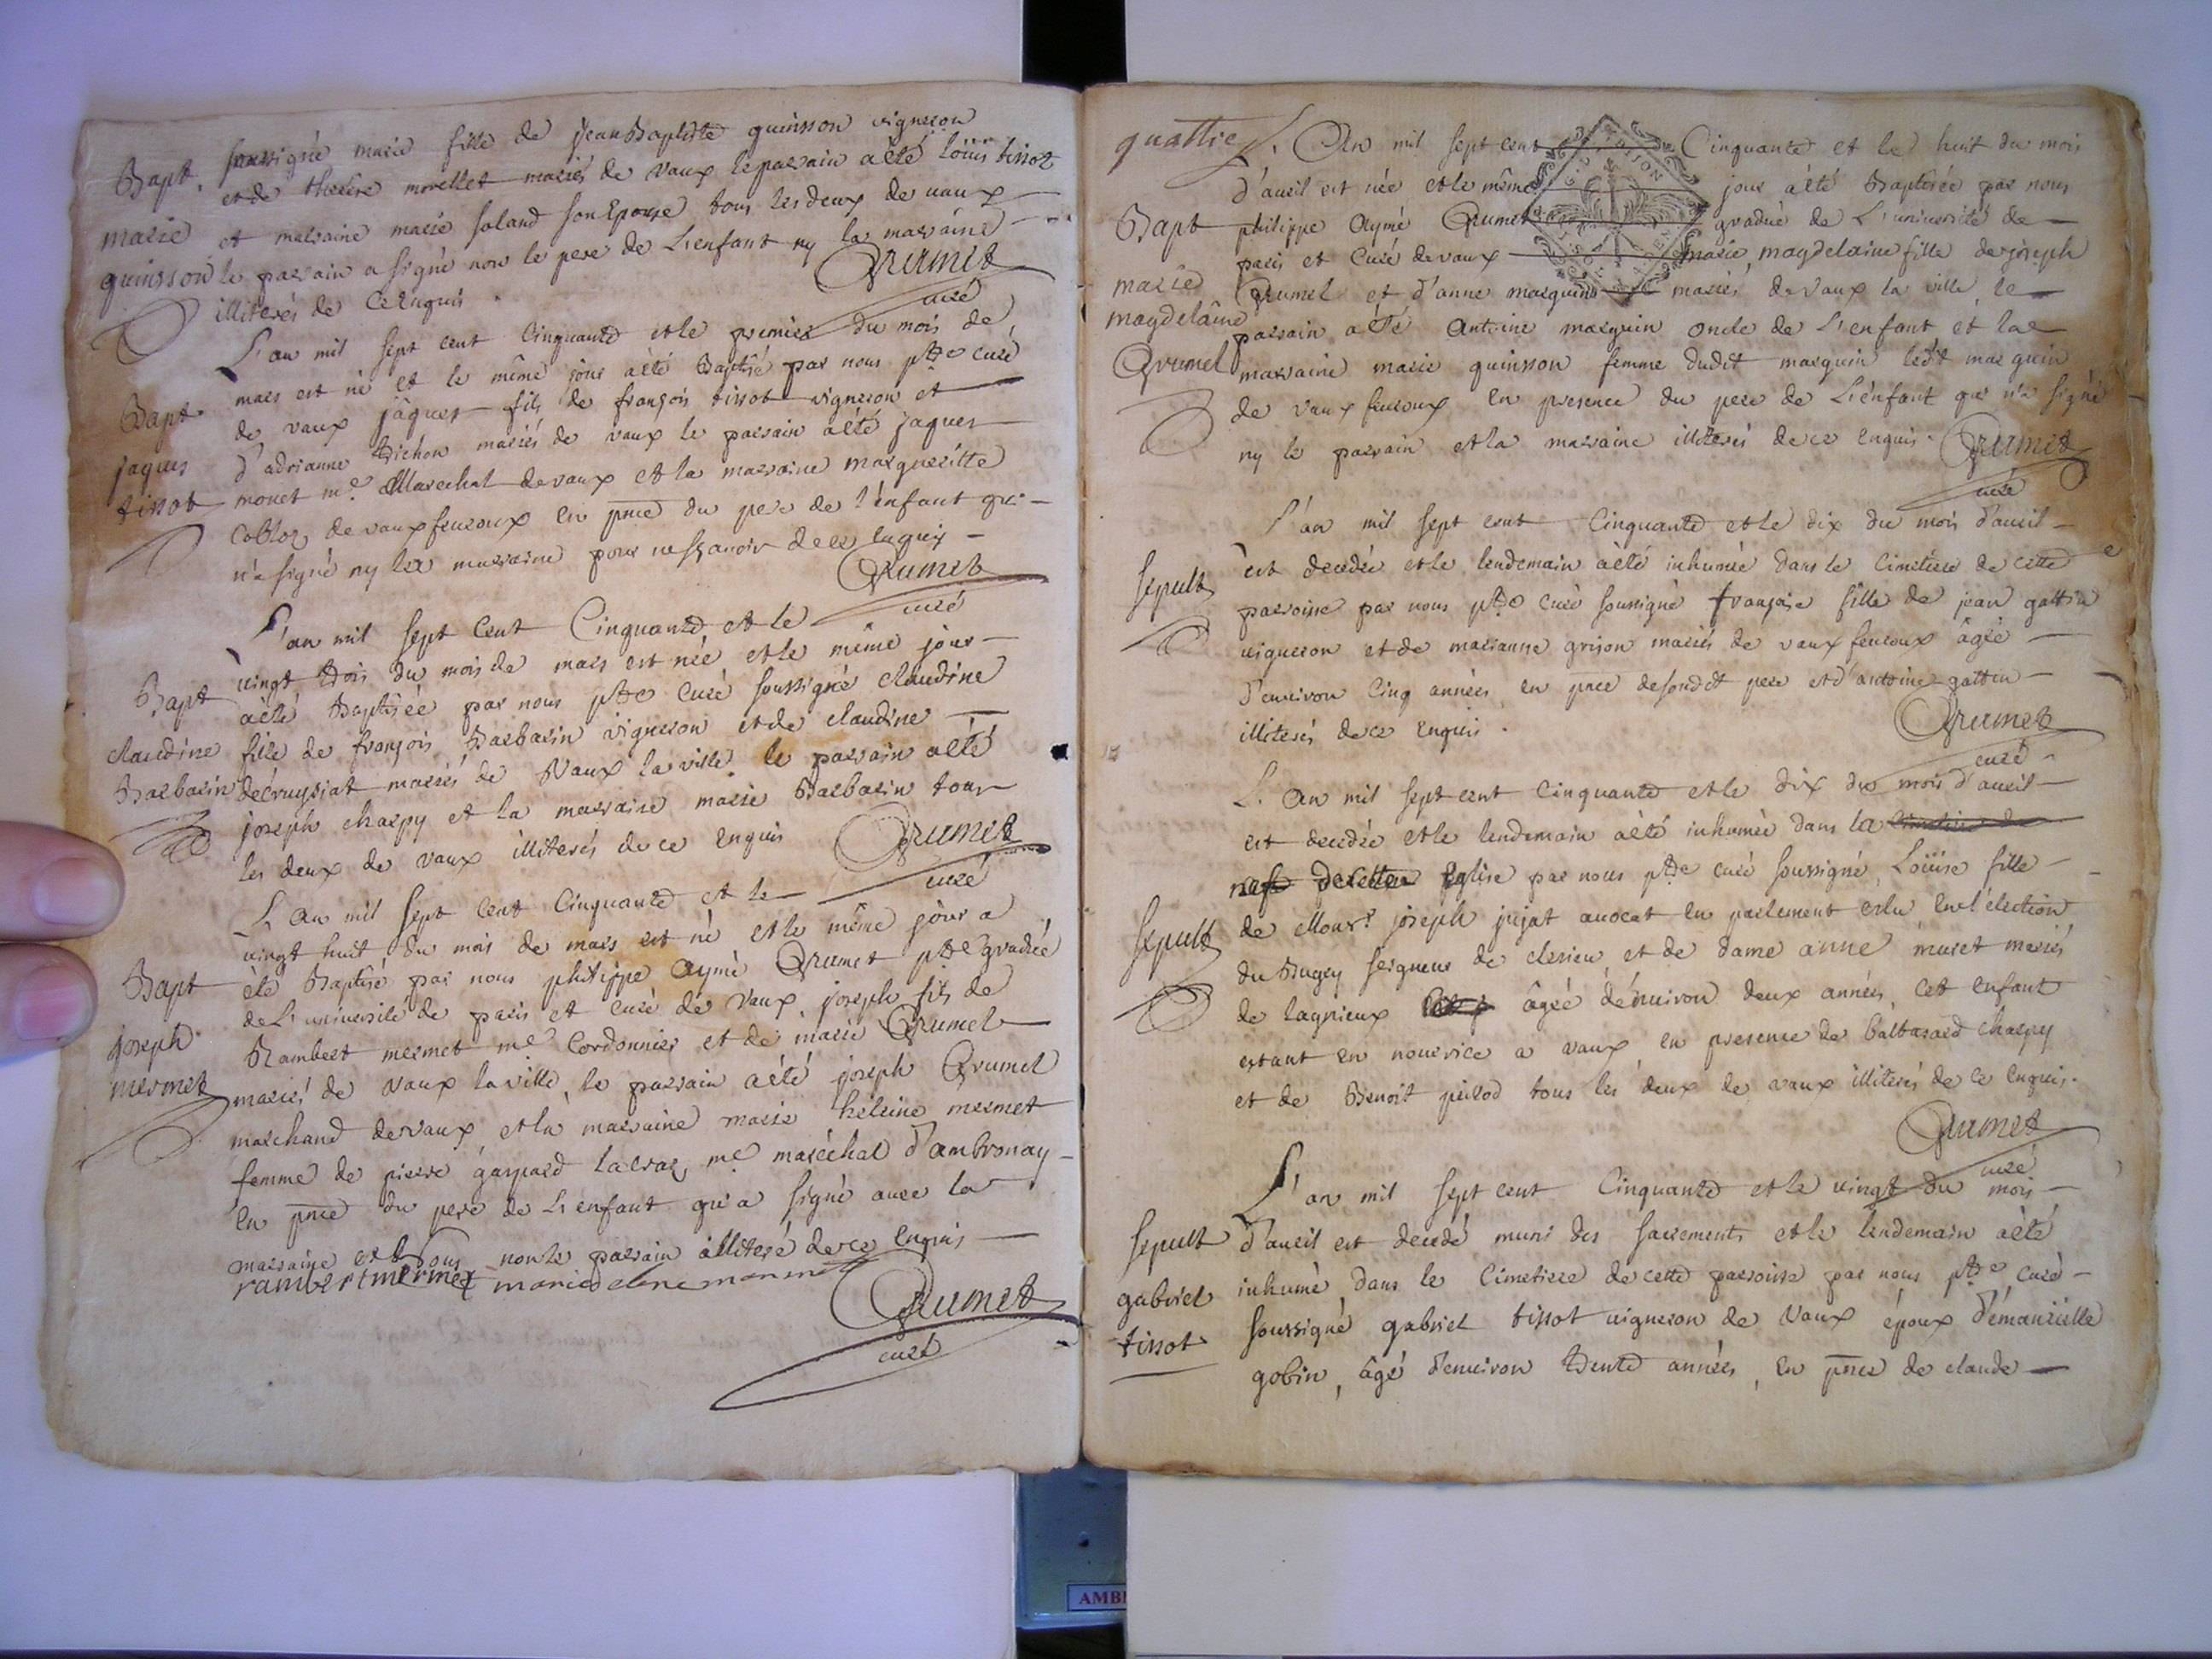 soussigné marie fille de jean Baptiste quinsson vigneron
Bapt. et de therese morellet mariés de vaux le parrain a été loüis tissot
marie et marraine marie soland son Epouse tous les deux de vaux
quinsson le parrain a signé non le pere de L'enfant ny la marraine
illiterés de ce Enquis.
Grumet
curé
L'an mil sept cent Cinquante et le premier du mois de
mars est né et le même jour a été Baptisé par nous ptre curé
Bapt. de vaux jâques fils de françois tissot vigneron et
jaques d'adrianne Trichon mariés de vaux le parrain a été jaques
tissot monet me Marechal de vaux et la marraine margueritte
de vaux fevroux en pnce du pere de l'enfant qui
n'a signé ny la marraine pour ne sçavoir de ce Enquis
Grumet
curé
L'an mil sept Cent Cinquante et le
vingt trois du mois de mars est née et le même jour
Bapt a été Baptisée par nous ptre Curé soussigné claudine
claudine fille de françois Barbarin vigneron et de claudine
Barbarin décruysiat mariés de Vaux la ville. le parrain a été
joseph charpy et la marraine marie Barbarin tous
les deux de vaux illiterés de ce Enquis
Grumet
curé
L'an mil sept Cent Cinquante et le
vingt huit du mois de mars est né et le même jour a
Bapt été Baptisé par nous philippe Aymé Grumet ptre gradué
de L'université de paris et curé de Vaux joseph fils de
joseph Rambert mermet me Cordonnier et de marie Grumet
mermet mariés de vaux la ville, le parrain a été joseph Grumet
marchand de vaux et la marraine marie heleine mermet
femme de pierre gaspard me maréchal d'ambronay
en pnce du pere de L'enfant qui a signé avec la
marraine et nous non le parrain illiteré de ce Enquis
rambert mermet marie elene mermet
Grumet
curé
quattre L'An mil sept cent Cinquante et le huit du mois
d'avril est née et le même jour a été Baptisée par nous
Bapt philippe Aymé Grumet gradué de L'université de
paris et Curé de vaux marie magdelaine fille de joseph
marie Grumet et d'anne marquin mariés de Vaux la ville, le
magdelaine parrain a été Antoine marquin oncle de L'enfant et la
Grumet marraine marie quinson femme dudit marquin ledt marquin
de vaux fevroux en presence du pere de L'enfant qui n'a signé
ny le parrain et la marraine illiterés de ce Enquis.
Grumet
curé
L'an mil sept cent Cinquante et le dix du mois d'avril
est decedée et le lendemain a été inhumée dans le Cimetiere de cette
sepult paroisse par nous ptre Curé soussigné françoise fille de jean gattin
vigneron et de marianne grison mariés de vaux fevroux âgée
d'environ Cinq années en pnce de sondt pere et d'antoine gattin
illiterés de ce Enquis.
Grumet
curé
L'an mil sept cent Cinquante et le dix du mois d'avril
est decedée et le lendemain a été inhumée dans la Cimetiere de
nef de cette Eglise par nous ptre curé soussigné, Loüise fille
sepult de Monsr joseph jujat avocat en parlement eslu en l'élection
du Bugey seigneur de clerieu et de dame anne muret mariés
de lagnieux âgée d'environ deux années, Cet Enfant
estant en nourrice a vaux, en presence de Baltasard charpy
et de Benoit perrod tous les deux de vaux illiterés de ce Enquis.
Grumet
curé
L'an mil sept cent Cinquante et le vingt du mois
sepult d'avril est decedé muni des sacrements et le lendemain a été
gabriel inhumé dans le Cimetiere de cette parroisse par nous ptre curé
tissot soussigné gabriel tissot vigneron de Vaux époux d'émanüelle
gobin, âgé d'environ trente années, en pnce de claude